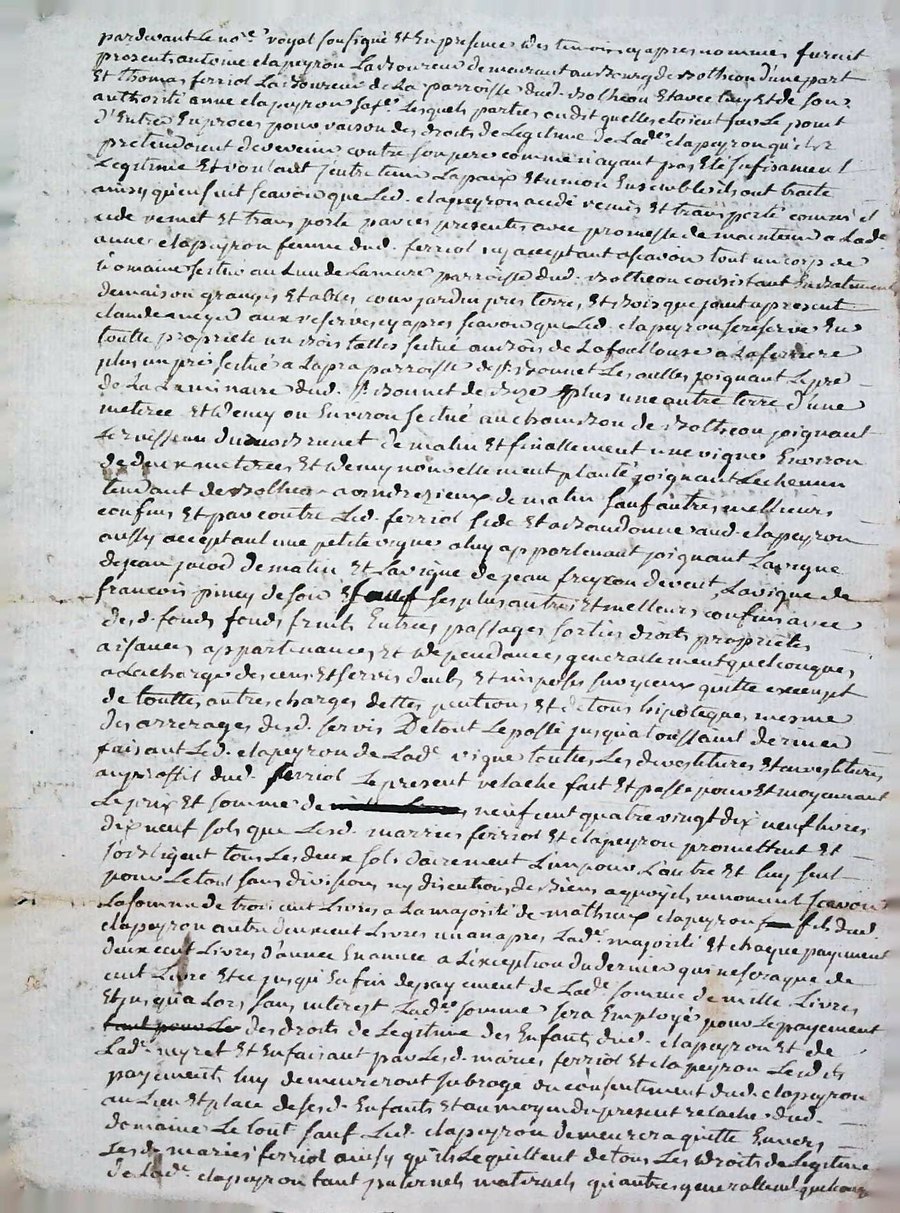 pardevant Le no.re royal soussigné Et En presence des temoins cy apres nommes furent
presents antoine clapeyron Laboureur demeurant au Bourg de Botheon d'une part
Et thomas ferriol Laboureur de La parroisse dud. Botheon Et avec luy Et de son
authorité anne clapeyron sa fe. Lesquels parties ont dit quelles etoient sur Le point
d'Entrer En proces pour raison des droits de Legitime de Lade. clapeyron qu'elle
pretendoient devenir contre son pere comme n'ayant pas Eté sufisament
Legitimée Et voulant Entretenir La paix Et union Ensemble ils ont traité
ainsy qu'ensuit scavoir que Led. clapeyron a cedé remis Et transporté comme il
cede remet Et transporte par ces presentes avec promesse de maintenir a Lade
anne clapeyron femme dud. ferriol icy acceptant ascavoir tout un corps de
Domaine scitué au Lieu de Lamure parroisse dud. Botheon consistant En Batiment
de maison granges Etables cour jardin pres terres Et Bois que jouit a present
claude aux reserves cy apres scavoir que Led. clapeyron se reserve En
toutte proprieté un Bois tallis scitué au Bois de La
plus un pré scitué a Lapra parroisse de St Bonnet Les oulles joignant Le pré
de La Luminaire dud. St Bonnet de plus une autre terre d'une
meterée Et demy ou Environ scitué au chambon de Botheon joignant
Le ruisseau du de matin Et finallement une vigne Environ
de deux meterées Et demy nouvellement planté joignant Le chemin
tendant de Botheon a andrezieux de matin sauf autres meilleurs
confins Et par contre Led. ferriol cede Et abandonne aud. clapeyron
aussy acceptant une petite vigne a luy appartenant joignant La vigne
de jean jacod de matin Et La vigne de jean freycon de vent, La vigne de
francois piney de soir Et sauf ses plus autres Et meilleurs confins avec
desd. fonds fonds fruits Entrées passages sorties droits proprietés
aisances appartenances Et dependances generallement quelconques
a La charge des cens Et servis deubs Et imposés sur yceux quitte exempt
de touttes autres charges dettes pentions Et de tous hipoteques mesme
des arrerages desd. servis De tout Le passé jusqu'a toussaint dernier
faisant Led. clapeyron de Lade. vigne touttes Les devestitures Et investitures
au proffit dud. ferriol Le present relache fait Et passé pour Et moyennant
Le prix Et somme de neuf cent quatre vingt dix neuf livres
dix neuf sols que Lesd. marries ferriol Et clapeyron promettent Et
s'obligent tous Les deux solidairement L'un pour L'autre Et luy seul
pour Le tout sans division ny discution de Biens a quoy ils renoncent scavoir
La somme de trois cent Livres a La majorité de mathieux clapeyron fils dud.
clapeyron autre deux cent Livres un an apres Lade. majorité Et chaque payement
deux cent Livres d'année En année a L'exception du dernier qui ne sera que de
cent Livre Et ce jusqu'En fin de payement de Lade. somme de mille Livres
Et jusqu'a Lors sans interest Lade. somme sera Employée pour Le payement
des droits de Legitime des Enfants dud. clapeyron Et de
Lade. Et En faisant par Lesd. maries ferriol Et clapeyron Lesdits
payements luy demeureront subrogé du consentement dud. clapeyron
au Lieu Et place de sesd. Enfants Et au moyen du present relache dud.
domaine Le tout sauf Led. clapeyron demeurera quitte Envers
Lesd. maries ferriol ainsy qu'ils Le quittent de tous Les droits de Legitime
de Lade. clapeyron tant paternels maternels qu'autres generallement quelconq